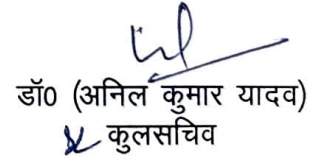 डॉ0 (अनिल कुमार यादव)
कुलसचिव